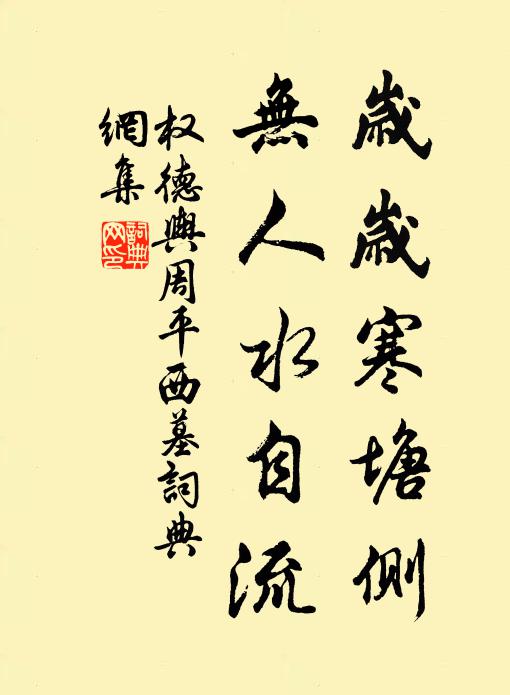 歲歲寒塘側
無人水自流
权德輿周平西墓詞典
網集
詞典
网印